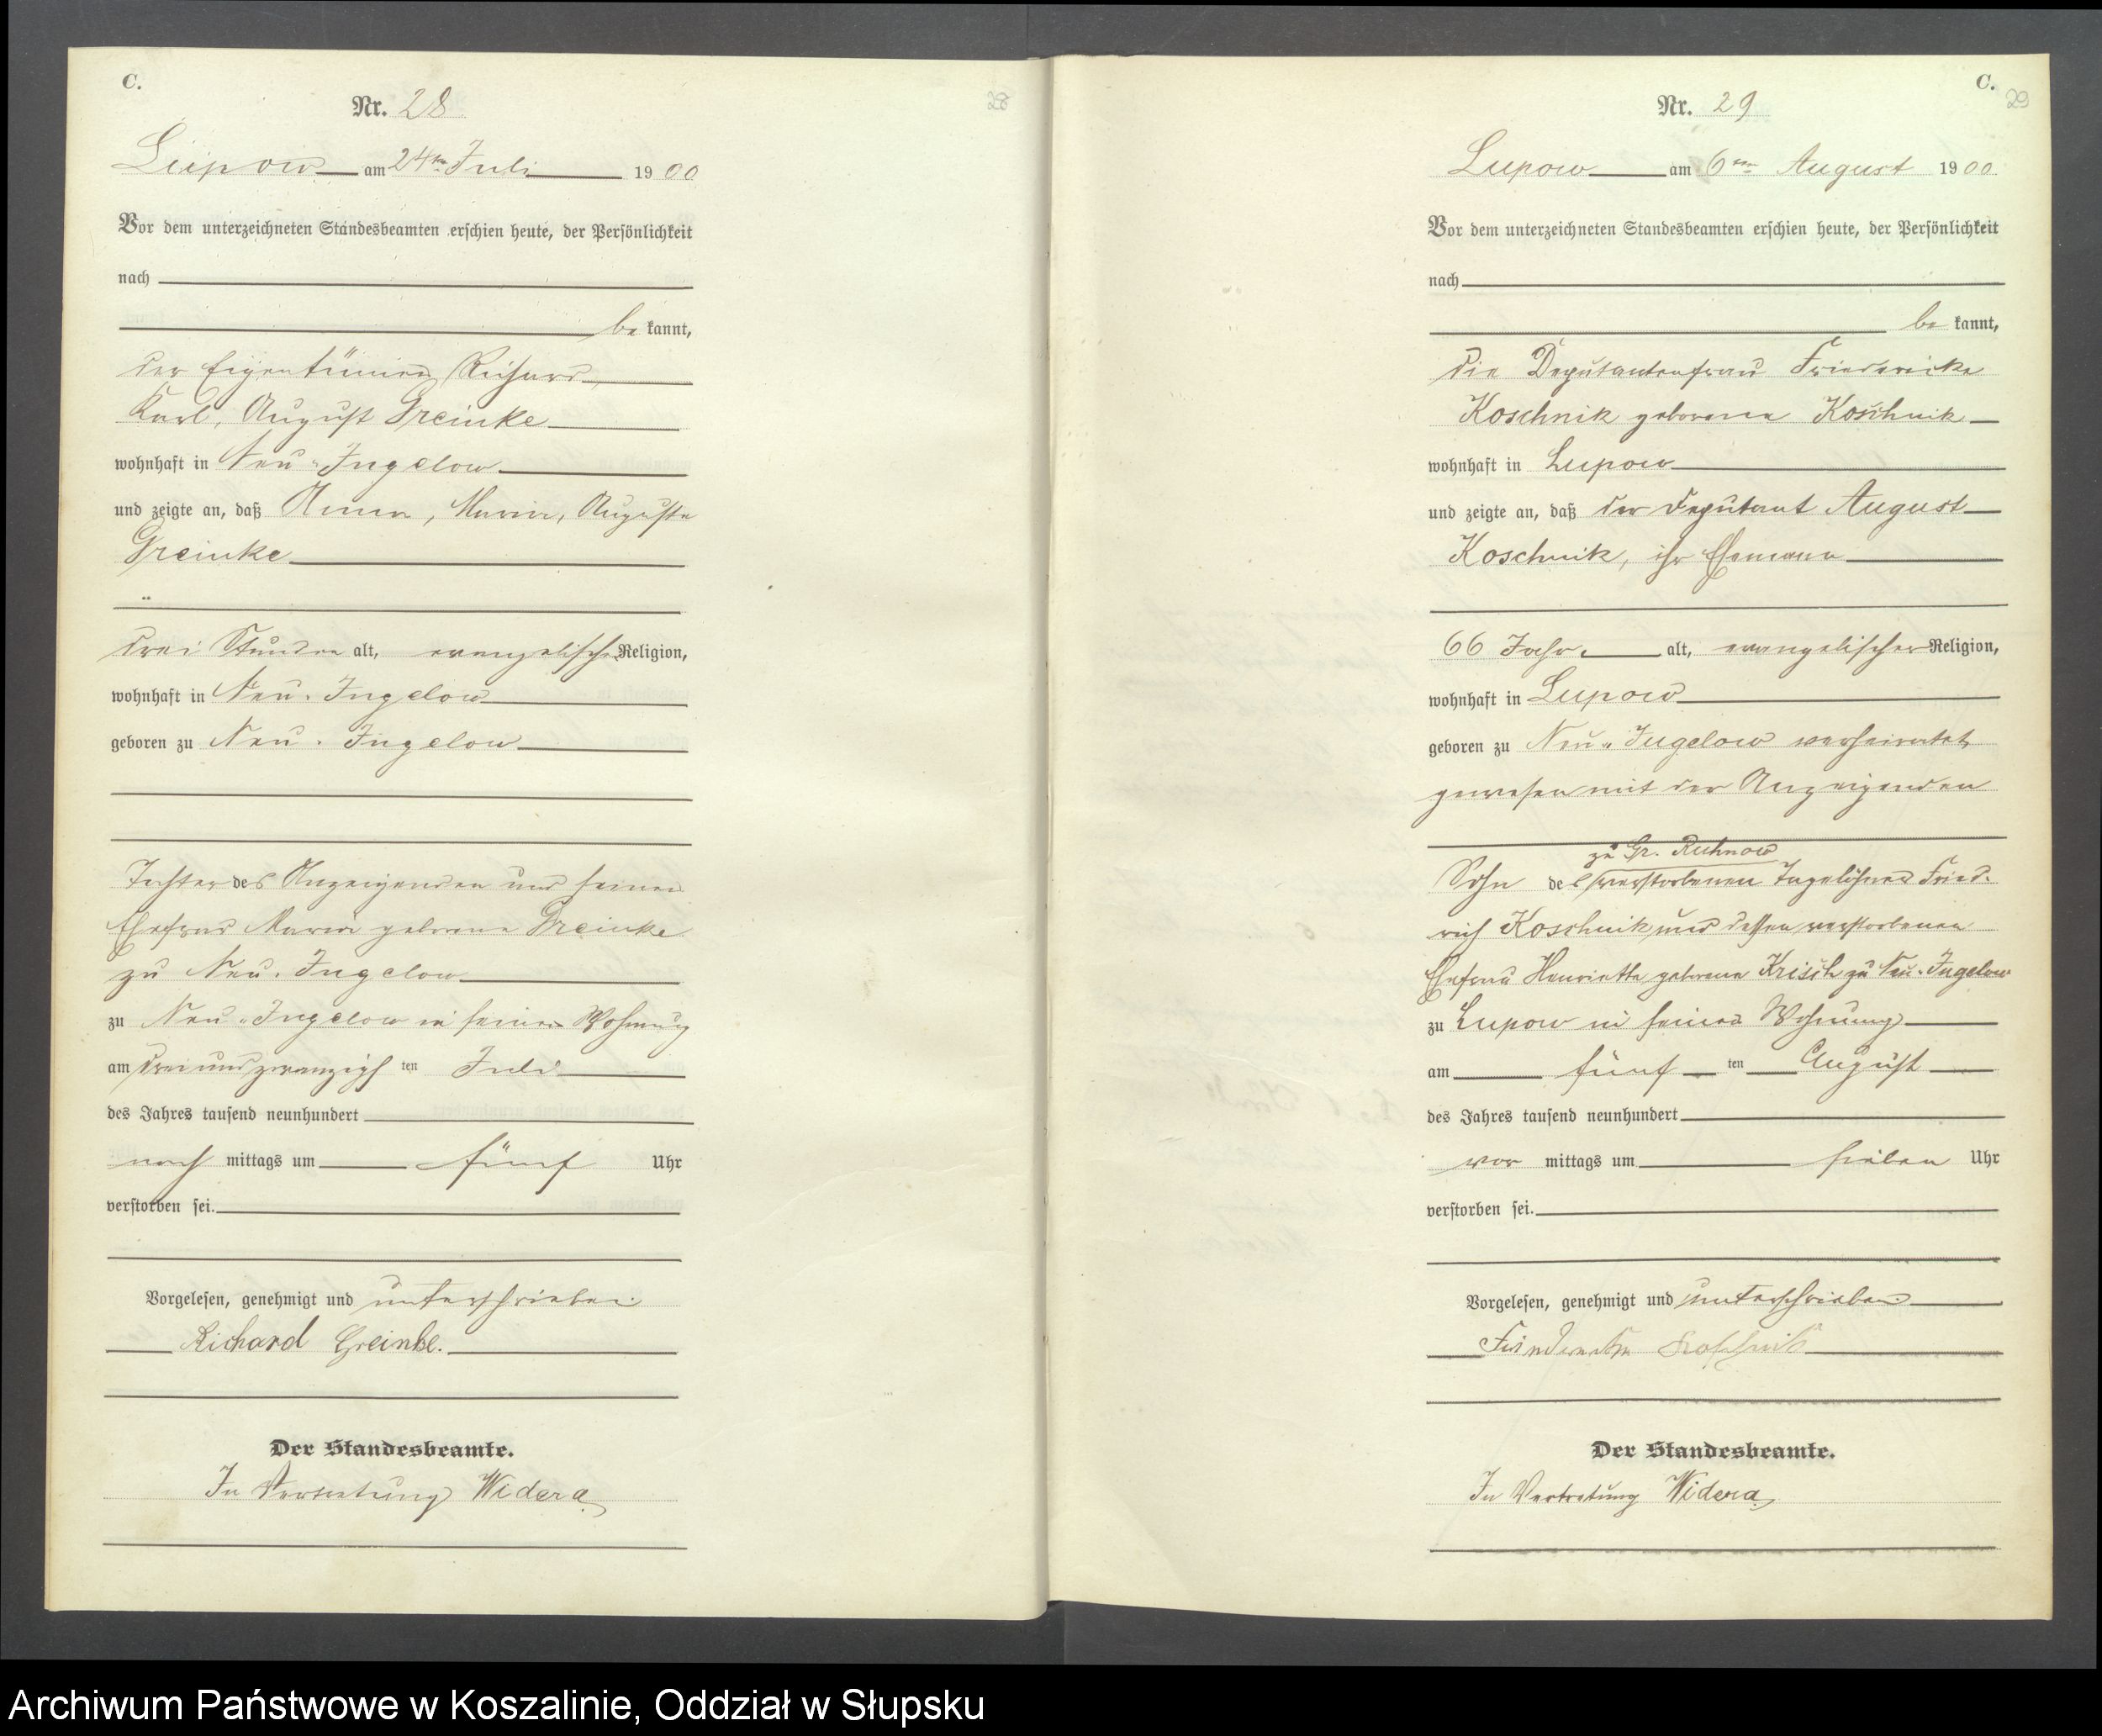 C.
Nr. 28
28
Lupow am 24ten Juli 1900
Vor dem unterzeichneten Standesbeamten erschien heute, der Persönlichkeit
nach
be kannt,
der Eigentümer Richard,
Karl, August Greinke
wohnhaft in Neu-Jugelow
und zeigte an, daß Anna, Maria, Auguste
Greinke
drei Stunden alt, evangelischer Religion,
wohnhaft in Neu-Jugelow
geboren zu Neu-Jugelow
Tochter des Anzeigenden und seiner
Ehefrau Maria geborene Greinke
zu Neu-Jugelow
zu Neu-Jugelow in seiner Wohnung
am dreiundzwanzigsten Juli
des Jahres tausend neunhundert
nach mittags um fünf Uhr
verstorben sei.
Vorgelesen, genehmigt und unterschrieben.
Richard Greinke.
Der Standesbeamte.
In Vertretung Widera
C.
Nr. 29
29
Lupow am 6ten August 1900.
Vor dem unterzeichneten Standesbeamten erschien heute, der Persönlichkeit
nach
be kannt,
die Deputantenfrau Friedericke
Koschnik geborene Koschnik
wohnhaft in Lupow
und zeigte an, daß der Deputant August
Koschnik, ihr Ehemann
66 Jahre alt, evangelischer Religion,
wohnhaft in Lupow
geboren zu Neu-Jugelow verheiratet
gewesen mit der Anzeigenden
zu Gr. Ruhnow
Sohn des verstorbenen Tagelöhners Fried-
rich Koschnik und dessen verstorbenen
Ehefrau Henriette geborene Krisch zu Neu-Jugelow
zu Lupow in seiner Wohnung
am fünf ten August
des Jahres tausend neunhundert
vor mittags um sieben Uhr
verstorben sei.
Vorgelesen, genehmigt und unterschrieben.
Friedericke Koschnik
Der Standesbeamte.
In Vertretung Widera
Archiwum Państwowe w Koszalinie, Oddział w Słupsku